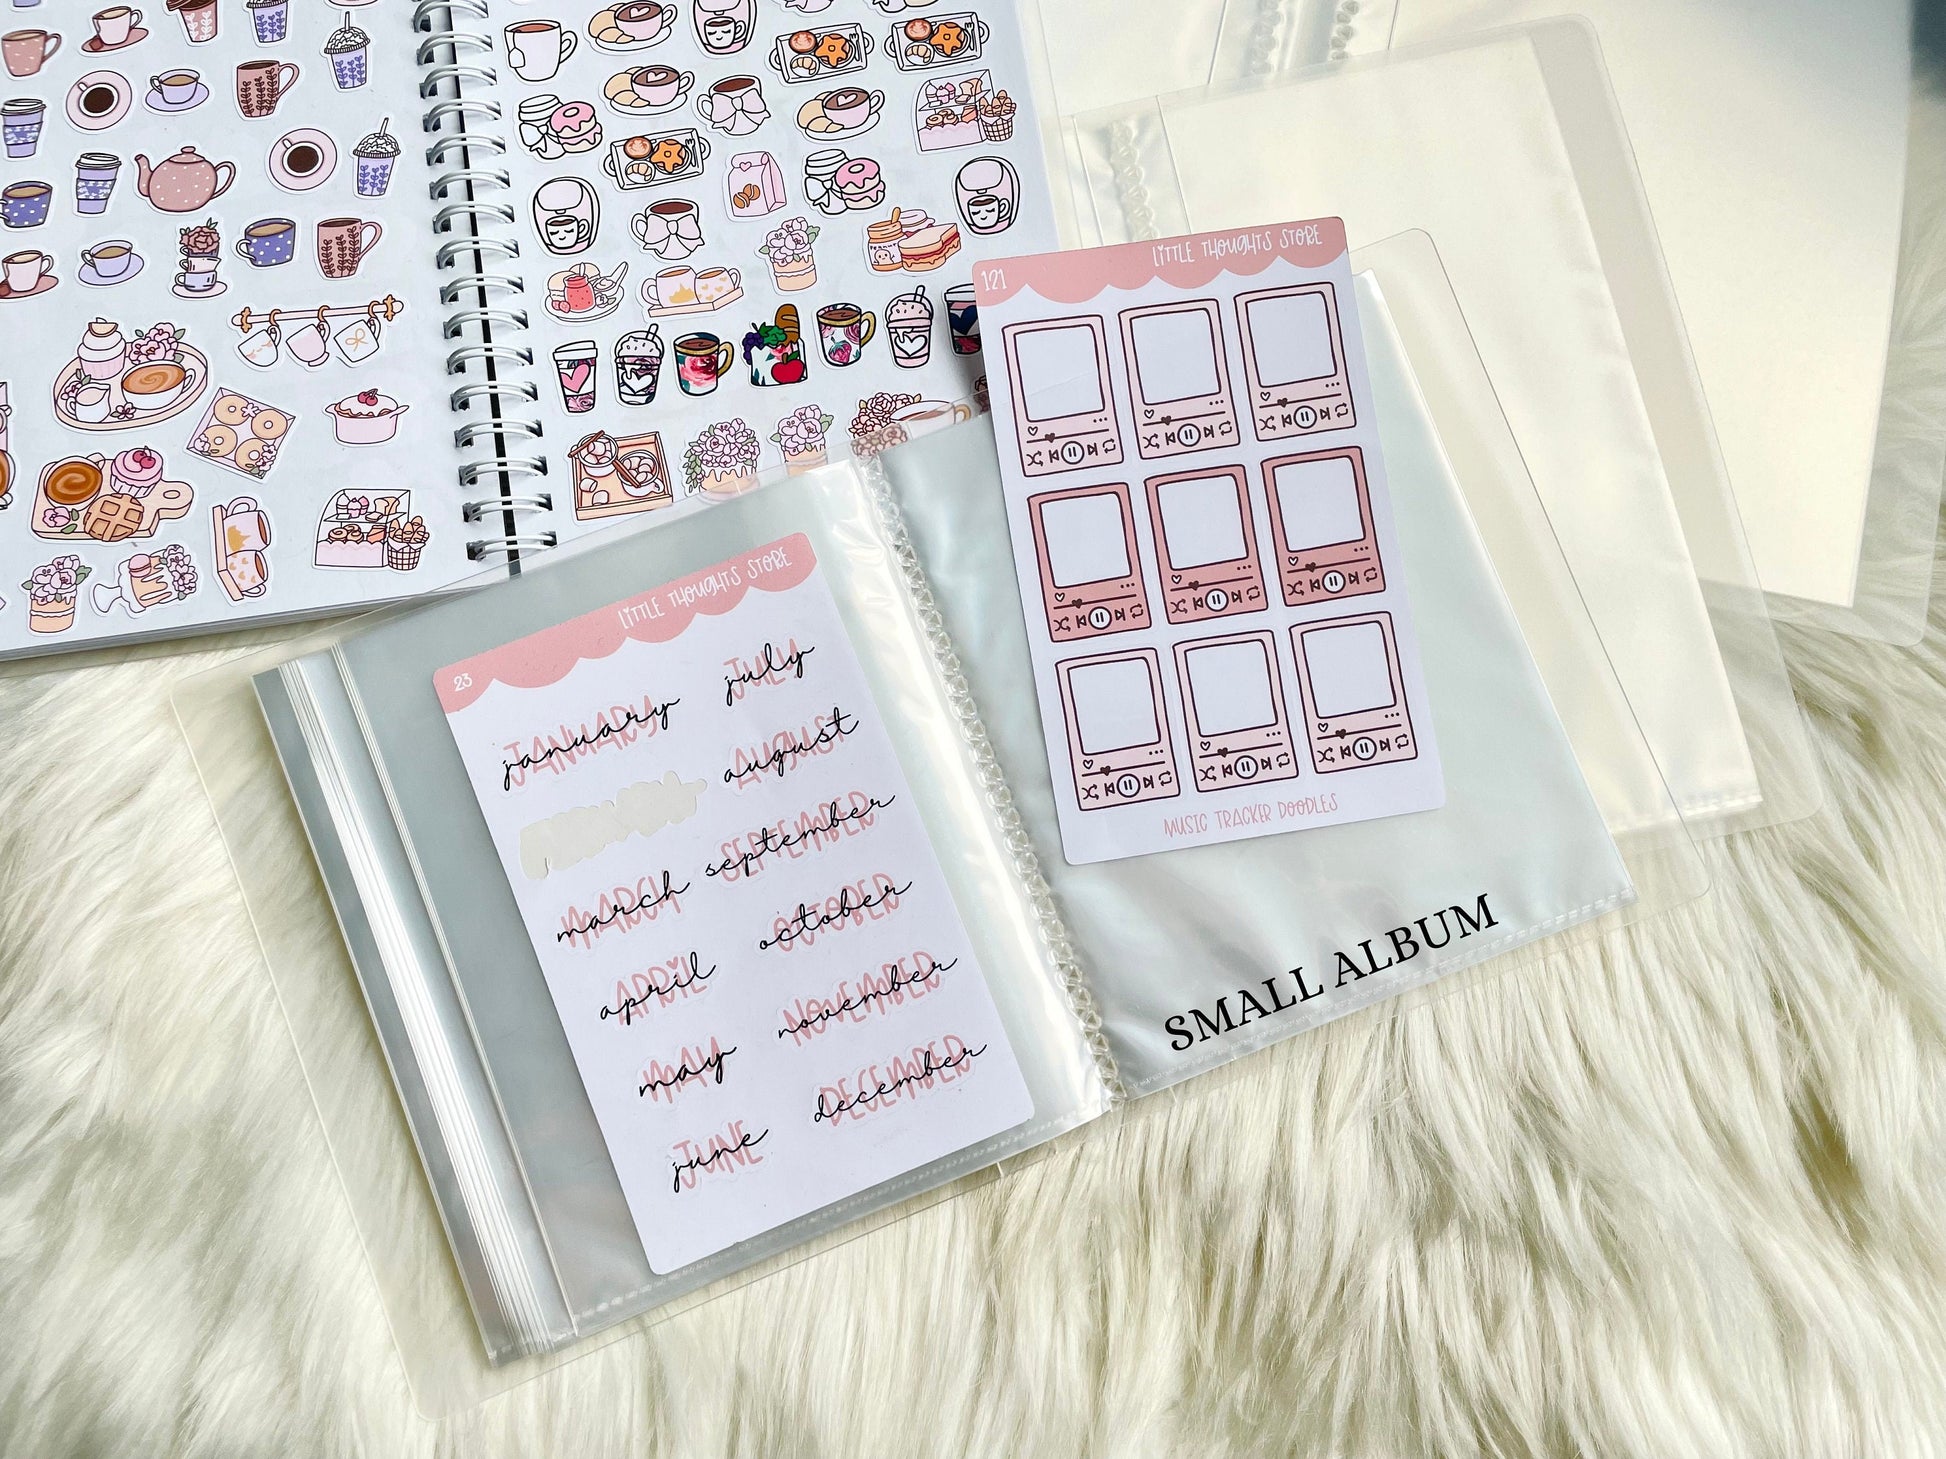 LITTLE THOUGHTS STORE
121
MUSIC TRACKER DOODLES
LITTLE THOUGHTS STORE
23
JANUARY january
MARCH march
APRIL april
MAY may
JUNE june
JULY july
AUGUST august
SEPTEMBER september
OCTOBER october
NOVEMBER november
DECEMBER december
SMALL ALBUM